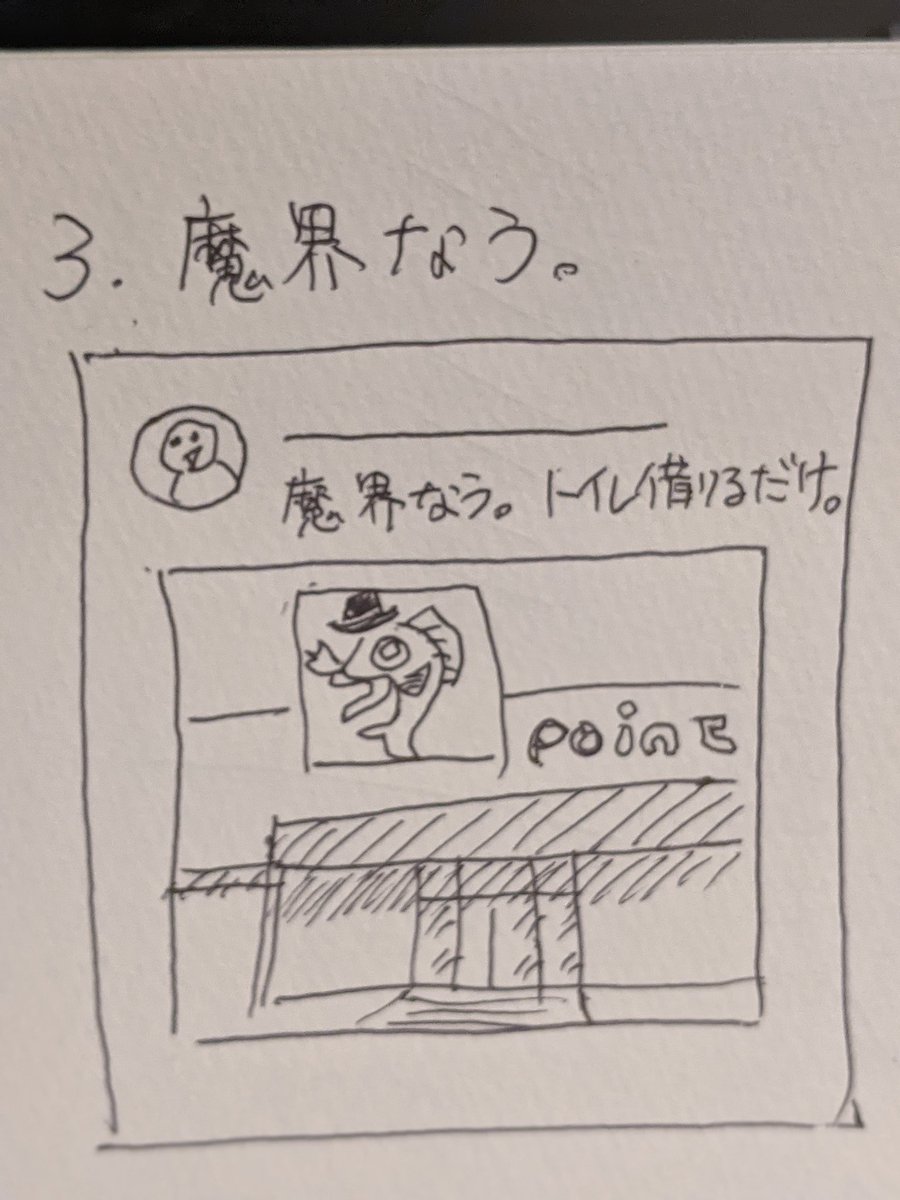 3. 魔界なう。
魔界なう。トイレ借りるだけ。
point